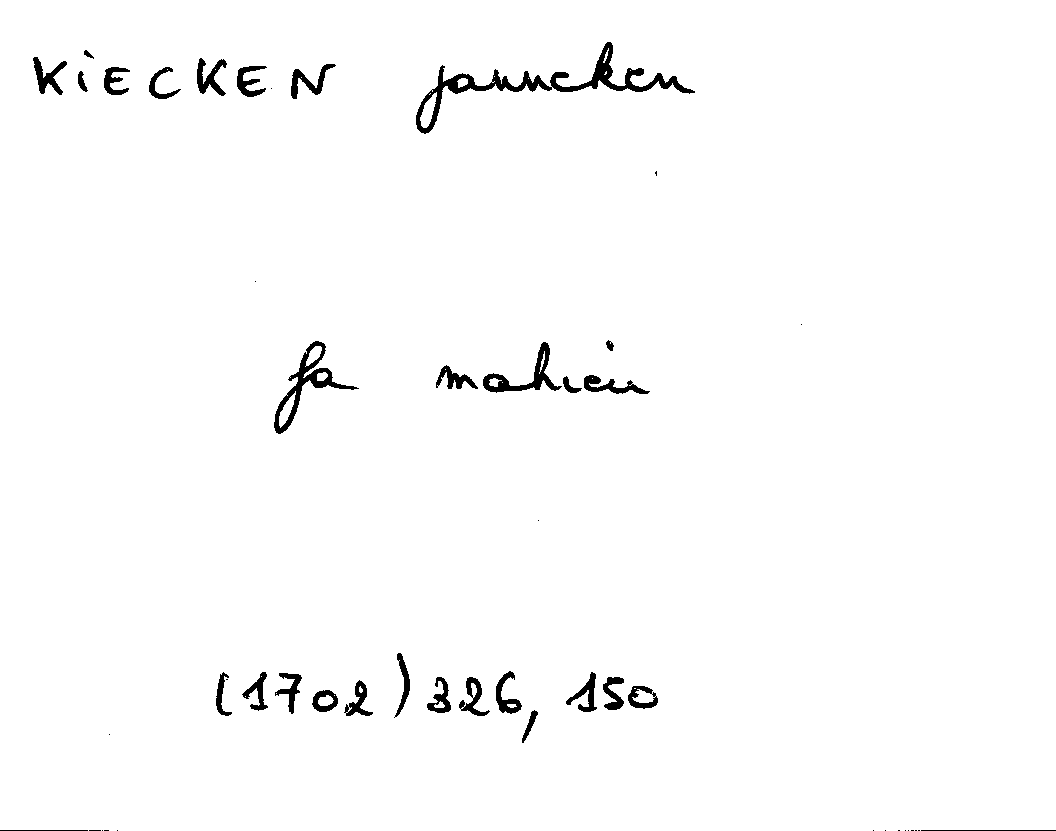 KiECKEN janneken
fa mahieu
(1702) 326, 150